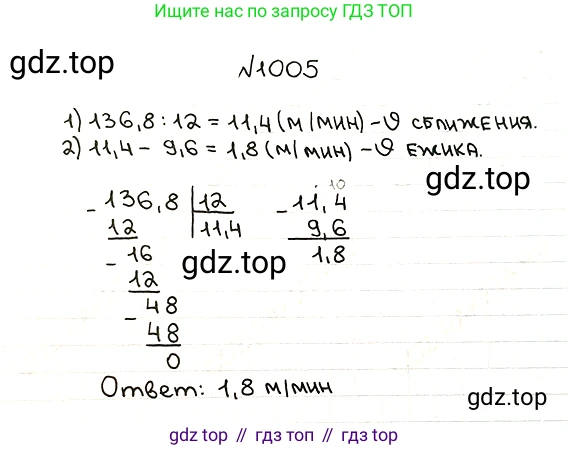 Ищите нас по запросу ГДЗ ТОП
gdz.top
№1005
1) 136,8 : 12 = 11,4 (м/мин) - υ сближения.
2) 11,4 - 9,6 = 1,8 (м/мин) - υ ежика.
gdz.top
- 136,8 | 12
12 | 11,4
- 16
12
- 48
48
0
10
- 11,4
9,6
1,8
gdz.top
Ответ: 1,8 м/мин
gdz.top
gdz.top // гдз топ // гдз.top